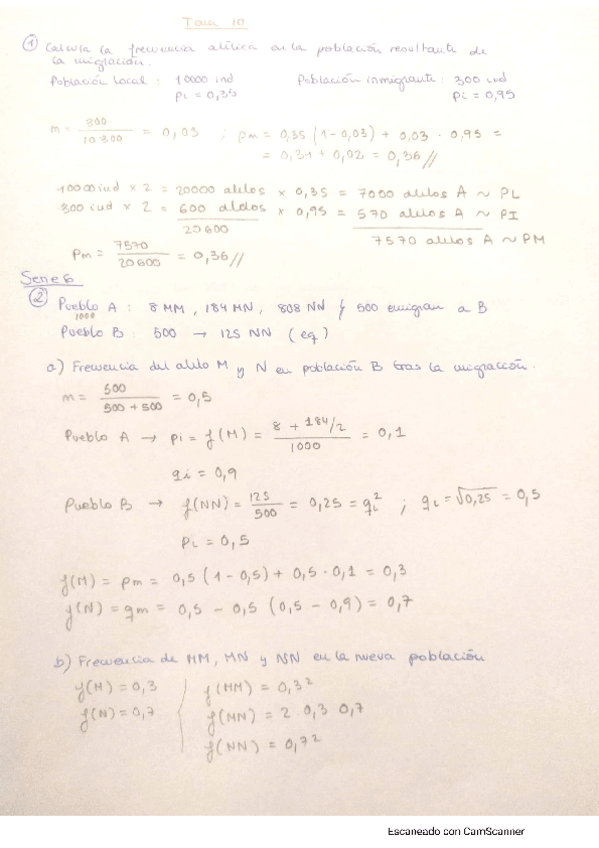 Tema 10
① Calcula la frecuencia alélica en la población resultante de
la migración.
Población local : 10000 ind Población inmigrante : 300 ind
pL = 0,35 pi = 0,95
m = 300 / 10300 = 0,03 ; pm = 0,35 (1-0,03) + 0,03 · 0,95 =
= 0,34 + 0,02 = 0,36 //
10000 ind × 2 = 20000 alelos × 0,35 = 7000 alelos A ~ PL
300 ind × 2 = 600 alelos × 0,95 = 570 alelos A ~ PI
20600 7570 alelos A ~ PM
pm = 7570 / 20600 = 0,36 //
Serie 6
② Pueblo A : 8 MM, 184 MN, 808 NN y 500 emigran a B
1000
Pueblo B : 500 → 125 NN (eq)
a) Frecuencia del alelo M y N en población B tras la migración.
m = 500 / 500 + 500 = 0,5
Pueblo A → pi = f(M) = 8 + 184/2 / 1000 = 0,1
qi = 0,9
Pueblo B → f(NN) = 125 / 500 = 0,25 = qL² ; qL = √0,25 = 0,5
pL = 0,5
f(M) = pm = 0,5 (1-0,5) + 0,5 · 0,1 = 0,3
f(N) = qm = 0,5 - 0,5 (0,5 - 0,9) = 0,7
b) Frecuencia de MM, MN y NN en la nueva población
f(M) = 0,3 f(MM) = 0,3²
f(N) = 0,7 f(MN) = 2 0,3 0,7
f(NN) = 0,7²
Escaneado con CamScanner